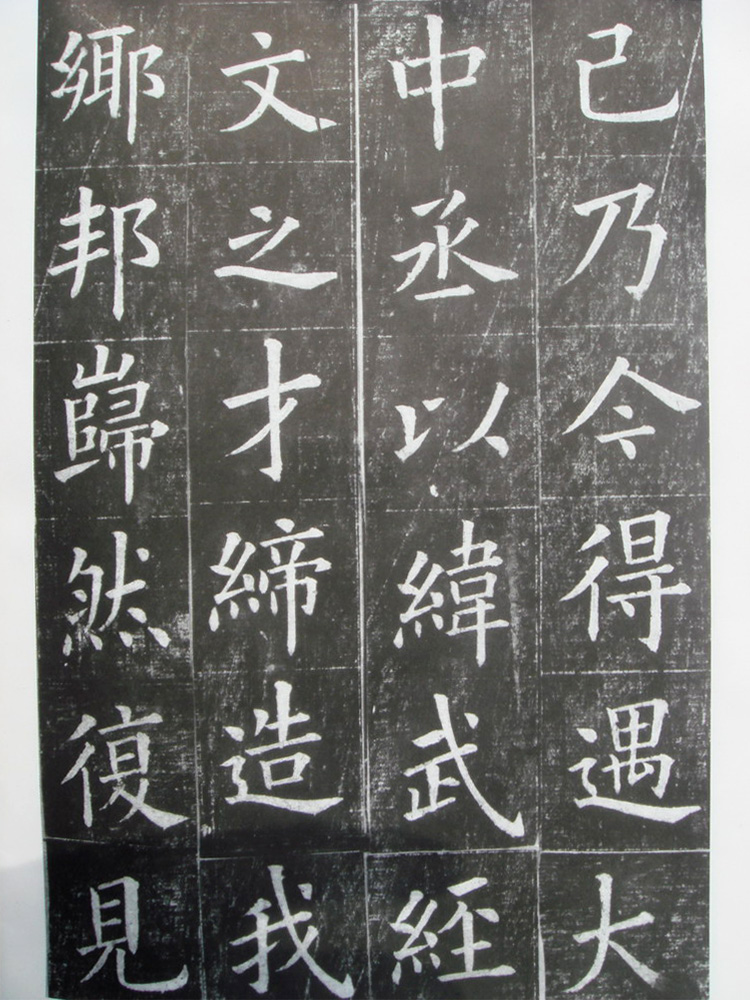 已乃今得遇大
中丞以緯武經
文之才締造我
鄉邦巋然復見